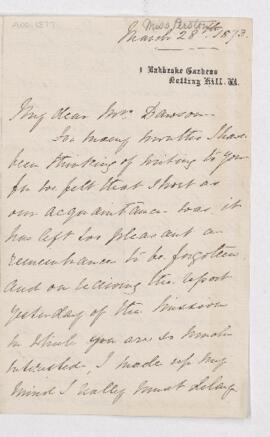 March 28th 1873.
Ladbroke Gardens
Notting Hill. W.
My dear Mr Dawson
For many months I have
been thinking of writing to you
for we felt that short as
our acquaintance was, it
has left too pleasant an
remembrance to be forgotten
and on receiving the report
yesterday of the mission
in which you are so much
interested, I made up my
mind I really must delay